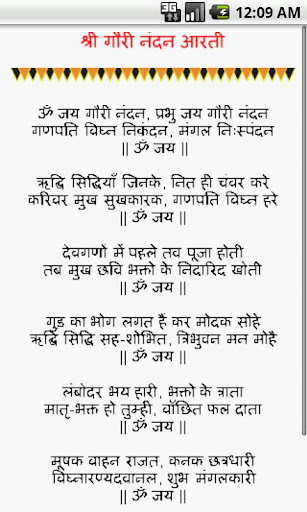 3G 12:09 AM
श्री गौरी नंदन आरती
ॐ जय गौरी नंदन, प्रभु जय गौरी नंदन
गणपति विघ्न निकंदन, मंगल निःस्पंदन
|| ॐ जय ||
ऋद्धि सिद्धियाँ जिनके, नित ही चंवर करे
करिवर मुख सुखकारक, गणपति विघ्न हरे
|| ॐ जय ||
देवगणों में पहले तव पूजा होती
तब मुख छवि भक्तो के निदारिद खोती
|| ॐ जय ||
गुड़ का भोग लगत हैं कर मोदक सोहे
ऋद्धि सिद्धि सह-शोभित, त्रिभुवन मन मोहै
|| ॐ जय ||
लंबोदर भय हारी, भक्तो के त्राता
मातृ-भक्त हो तुम्ही, वाँछित फल दाता
|| ॐ जय ||
मूषक वाहन राजत, कनक छत्रधारी
विघ्नारण्यदवानल, शुभ मंगलकारी
|| ॐ जय ||